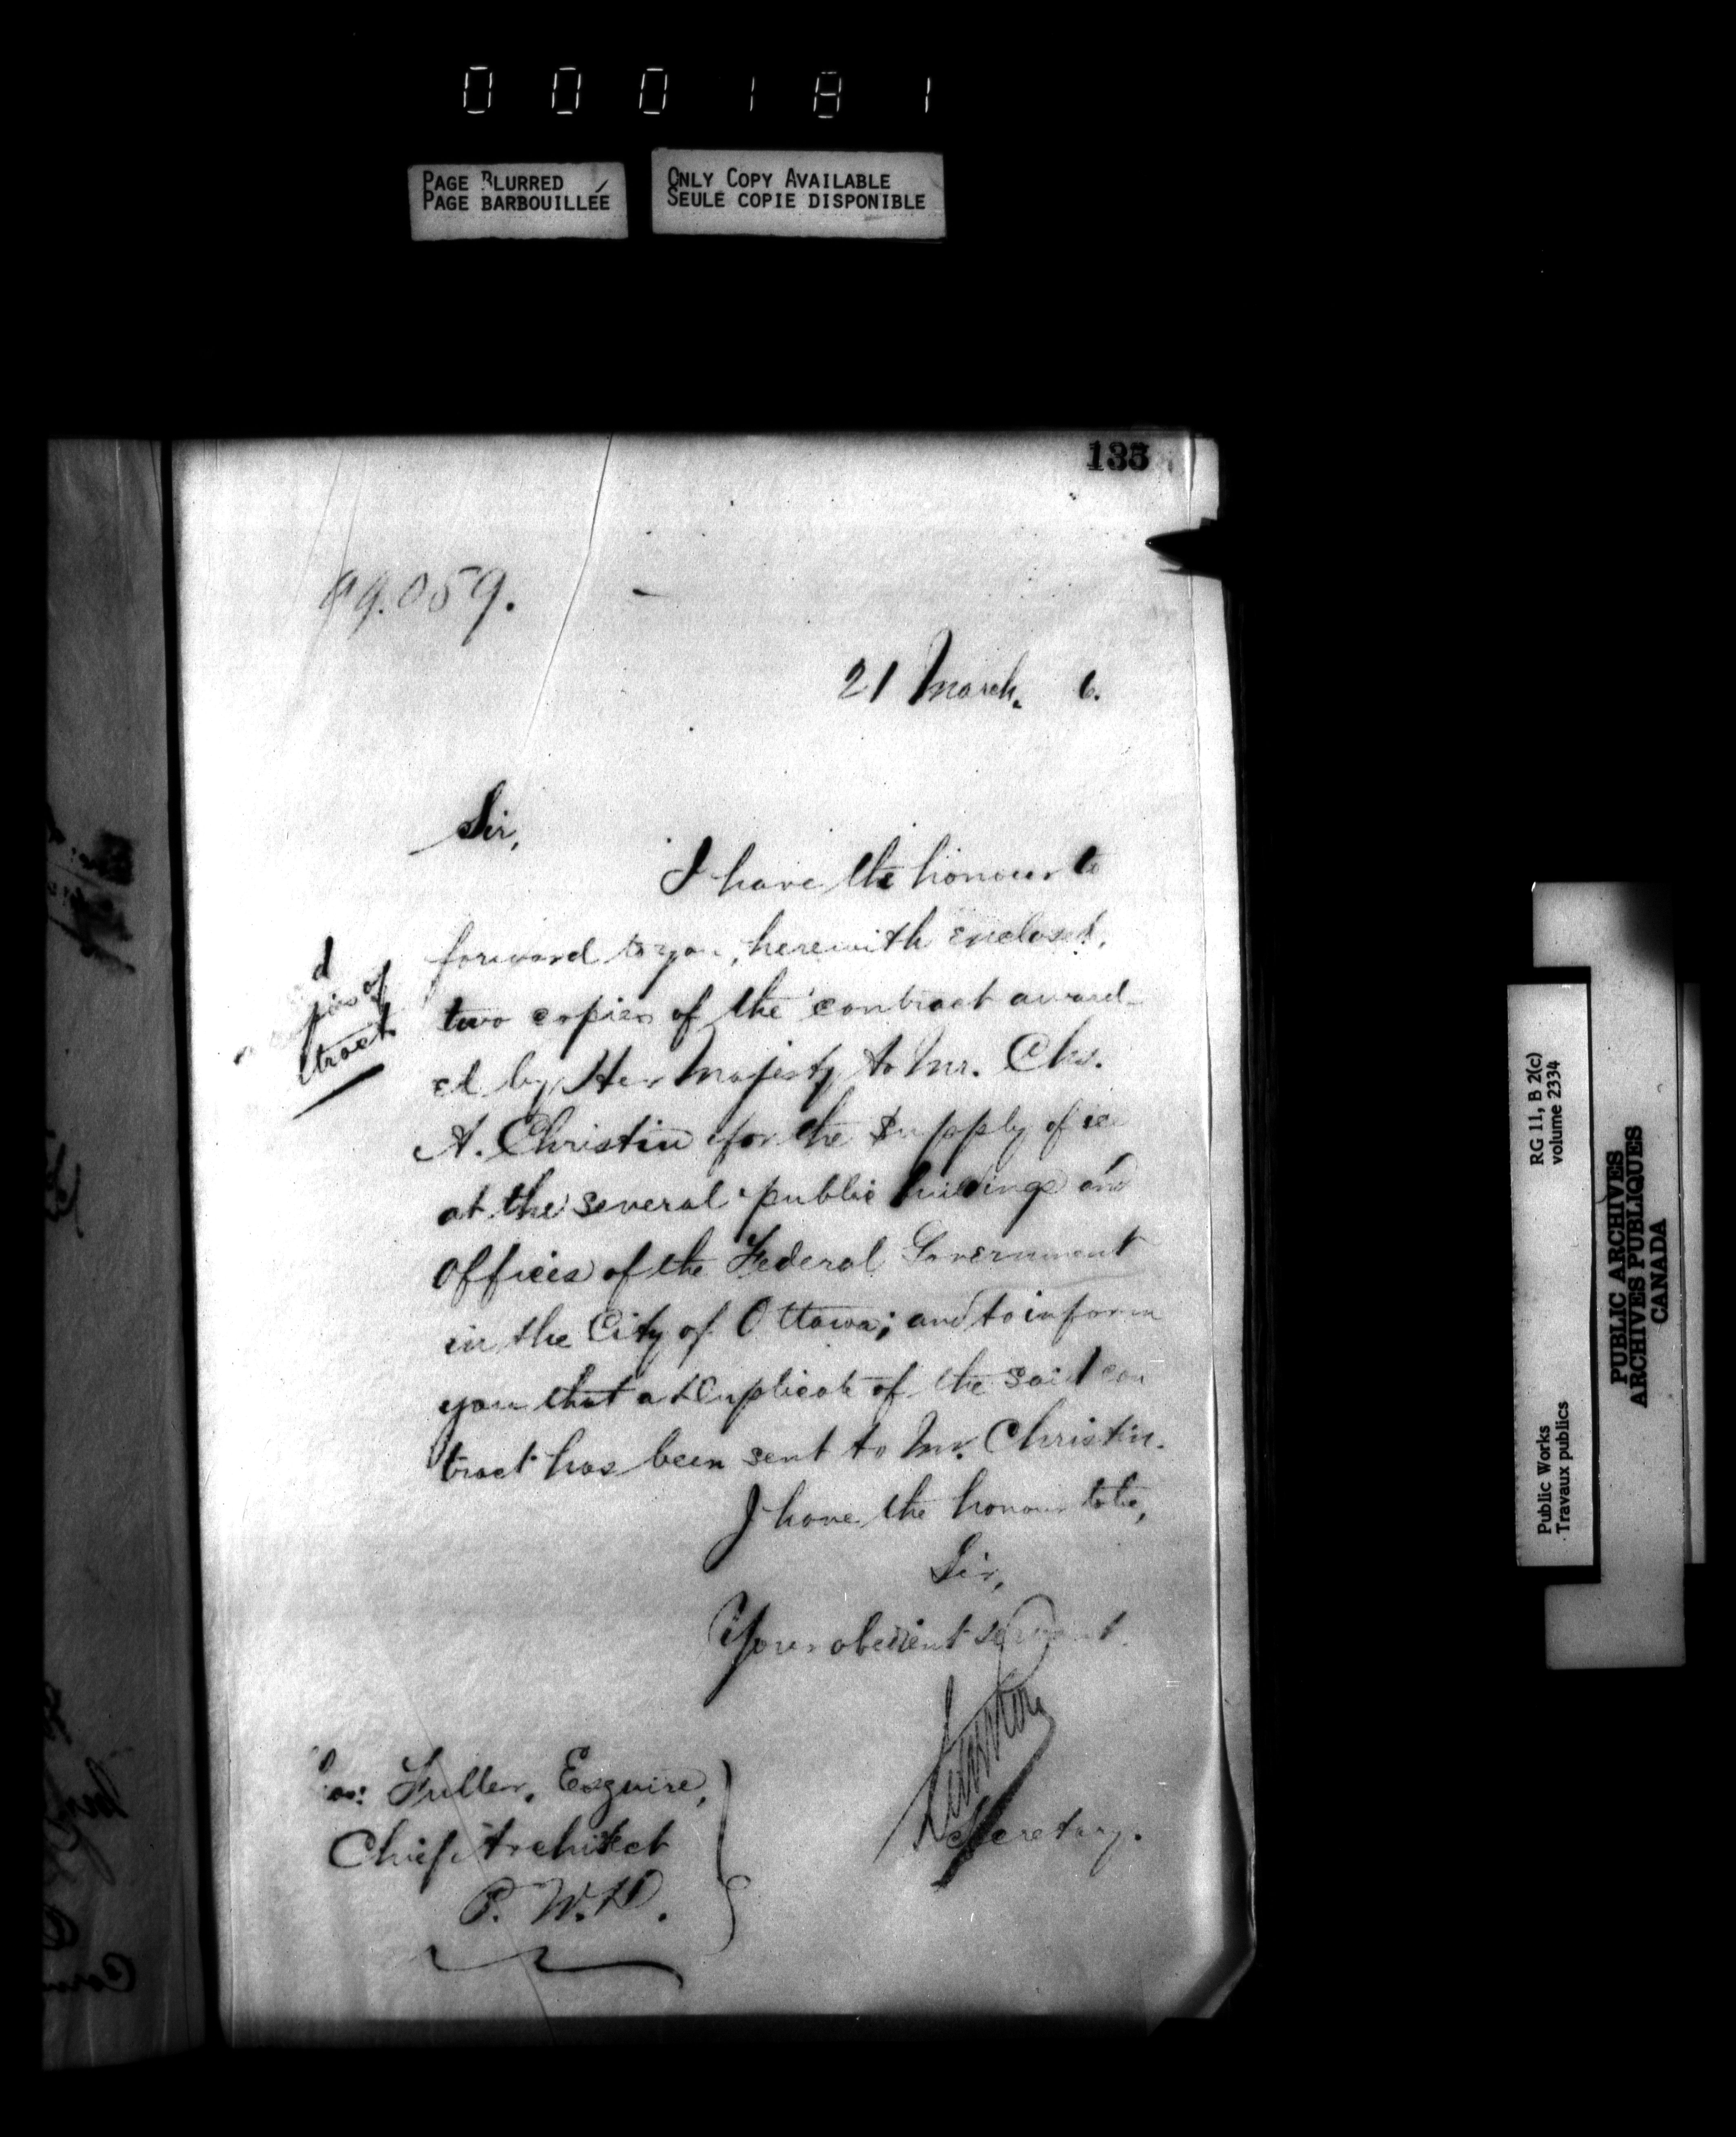 000181
PAGE BLURRED
PAGE BARBOUILLÉE
ONLY COPY AVAILABLE
SEULE COPIE DISPONIBLE
135
99.059.
21 March. 6.
Sir,
I have the honour to
forward to you, herewith enclosed,
two copies of the contract award-
ed by Her Majesty to Mr. Chs.
A. Christin for the supply of ice
at the several public buildings and
Offices of the Federal Government
in the City of Ottawa; and to inform
you that a duplicate of the said con
tract has been sent to Mr. Christin.
I have the honour to be,
Sir,
Your obedient servant.
Secretary.
d
pies of
tract
os: Fuller, Esquire,
Chief Architect
P. W. D.
RG 11, B 2(c)
volume 2334
Public Works
Travaux publics
PUBLIC ARCHIVES
ARCHIVES PUBLIQUES
CANADA